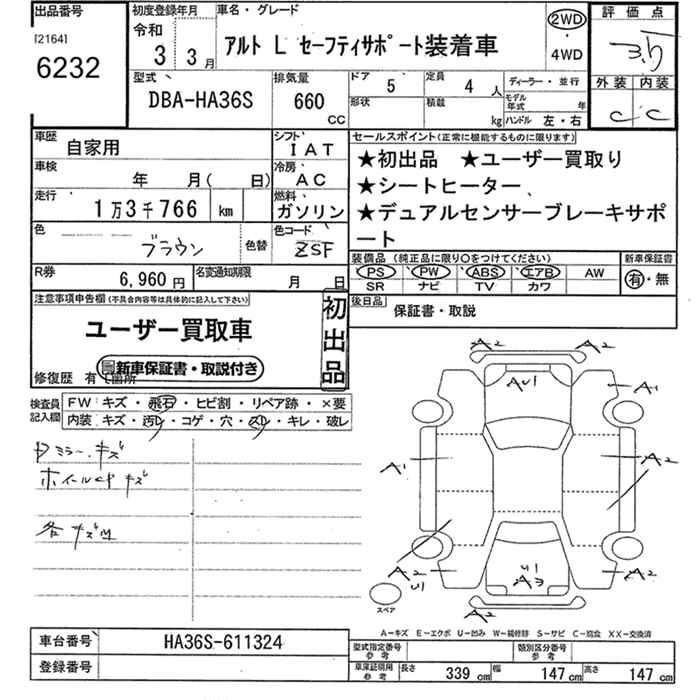 出品番号 初度登録年月 車名・グレード 評価点
[2164] 令和 2WD
6232 3年 3月 アルト L セーフティサポート装着車 ・ 3.5
4WD
型式 排気量 ドア 5 定員 4 人 ディーラー・並行 外装 内装
DBA-HA36S 660 CC 形状 積載 kg モデル年式 年 C C
ハンドル 左・右
車歴 自家用 シフト IAT セールスポイント(正常に機能するものに限ります)
車検 年 月( 日) 冷房 AC ★初出品 ★ユーザー買取り
走行 1万3千766 km 燃料 ガソリン ★シートヒーター
★デュアルセンサーブレーキサポ
ート
色 ブラウン 色替 色コード ZSF
装備品(純正品に限り○をつけてください) 新車保証書
R券 6,960円 名変通知期限 月 日 PS PW ABS エアB AW 有・無
SR ナビ TV カワ
注意事項申告欄(不具合内容等は具体的に記入して下さい) 初出品 後日品 保証書・取説
ユーザー買取車
新車保証書・取説付き
修復歴 有(箇所
検査員記入欄 FW キズ・飛石・ヒビ割・リペア跡・×要
内装 キズ・汚レ・コゲ・穴・スレ・キレ・破レ
ミラーキズ
ホイールCPキズ
各キズM
A2 A2
AU1
A1
A1 A2
A2 U1 A2
U1
A3
A2
スペア
A-キズ E-エクボ U-凹み W-補修跡 S-サビ C-腐食 XX-交換済
車台番号 HA36S-611324 型式指定番号 参考 類別区分番号 参考
登録番号 車庫証明用 参考 長さ 339 cm 幅 147 cm 高さ 147 cm